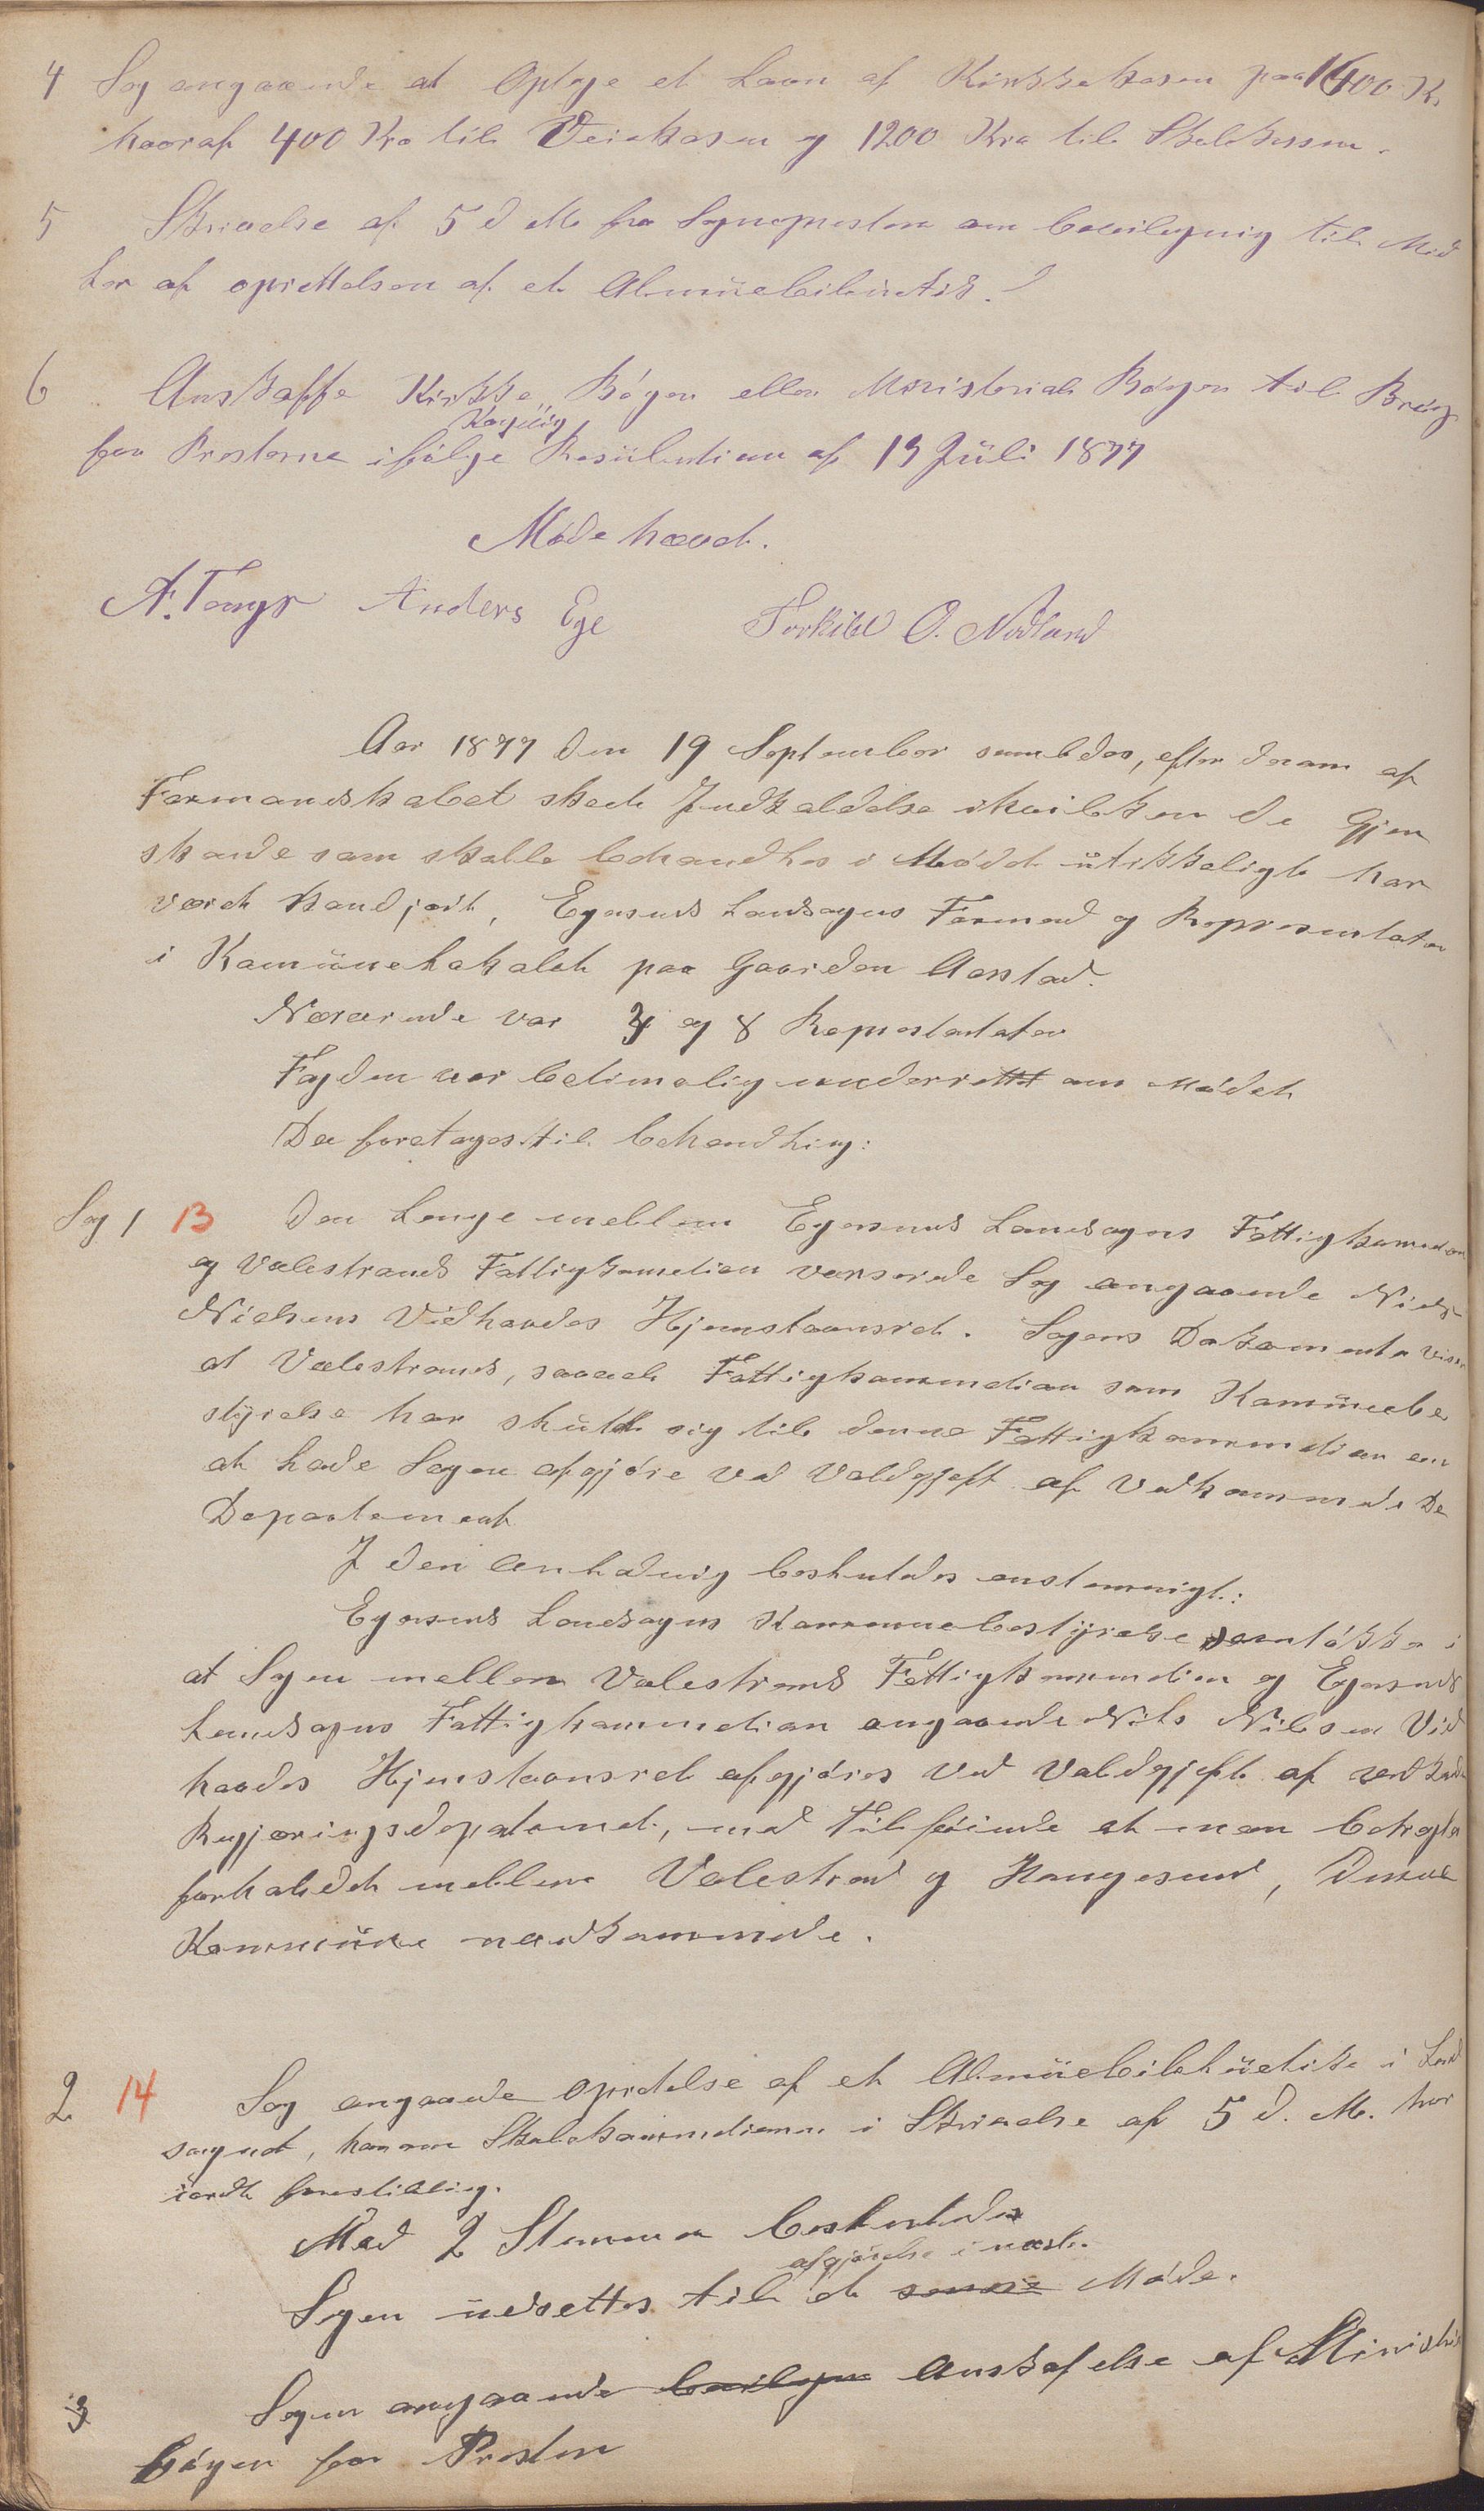 4 Sag angaaende at Optage et Laan af Kirkekasen paa 1600 Kr
hvoraf 400 Kro til Veiekasen og 1200 Kro til Skolekassen.
5 Skrivelse af 5 d M. fra Sognepresten om bevilgning til Mid
ler af oprettelsen af et Almüebibliotik.
6 Anskaffe Kirkke Bøger eller Ministerial Bøger til Brug
for Presterne ifølge Kogelig Resülution af 13 Jüli 1877
Møde hævet.
A. Tengs Anders Ege Torkild O. Nodland
Aar 1877 den 19 September samledes, efter dram af
Formandskabet skede Indkaldelse ihvilken de Gjen
stande som skulle behandles i Mødet ütrikkeligt har
været kandjort, Egersunds Landsogns Formend og Representater
i Kamünelokalet paa Gaarden Aarstad.
Nærærende var 3 og 8 Represtentater
Fogden var betimelig underrettet om Mødet
Da foretages til behandling:
Sag 1 13 Den Lenge mellem Egersunds Landsogns Fattigkommission
og Valestrands Fattigkomedion verserende Sag angaaende Niels
Nielsens Vidhovdes Hjemstaunsret. Sagens Dokomenter viser
at Valestrands, saavel Fattigkommedion som Kommünebe
styrelse har stillet sig til denne Fattigkommedion om
at lade Sagen afgjøre ved Voldgjeft af Vedkommende De
Departement
I den Anledning besluttedes enstemmigt:
Egersunds Landsogns Kommunebestyrelse samtøkker i
at Sagen mellem Valestrands Fattigkommedion og Egersunds
Landsogns Fattigkommedion angaaende Nils Nilsen Vid
hovdes Hjemstaunsret afgjøres ved Voldgjeft af vedkom
Regjeringsdepatement, med Tilføiende at man betragter
forholdet mellem Valestrand og Haugesund, Denne
Kommüne uvedkommende.
2 14 Sag angaaende Opretelse af et Almüebibliotik i Land
sognet, hvorom Skolekommedionen i Skrivelse af 5 d. M. har
iordt forestilling.
Med 2 Stemmer besluttedes
afgjørelse i næste
Sagen üdsettes til et senere Møde.
3 Sagen angaaende bevilgen Anskafelse af Ministri
bøger for Presten